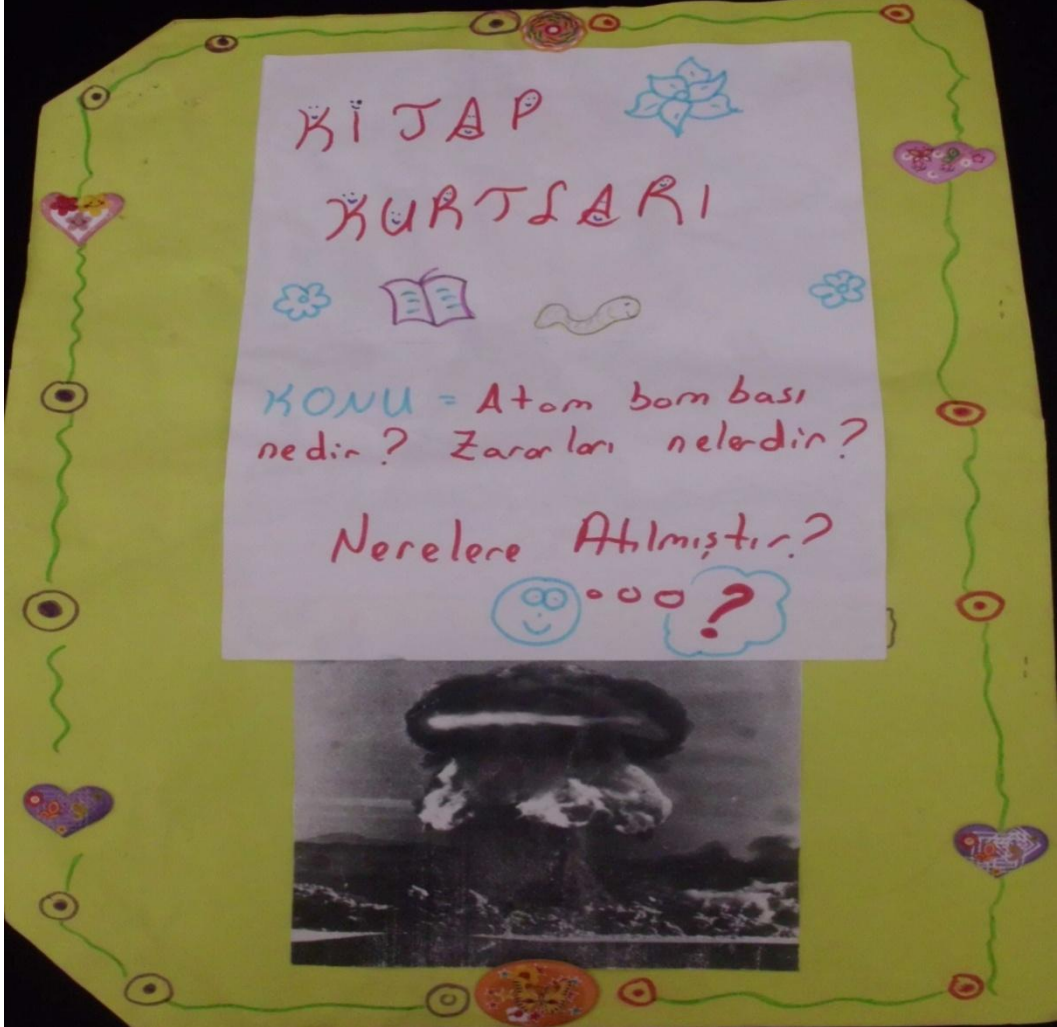 KİTAP
KURTLARI
KONU = Atom bombası
nedir? Zararları nelerdir?
Nerelere Atılmıştır?
?